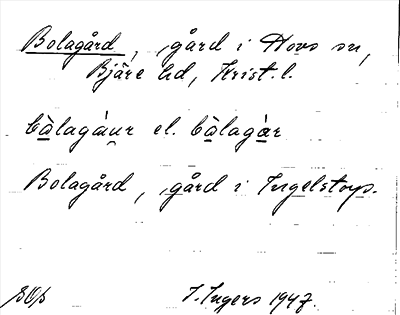 Bolagård, gård i Hovs sn,
Bjäre hd, Krist. l.
bålagåur el. bålagår
Bolagård, gård i Ingelstorp.
I. Ingers 1947.